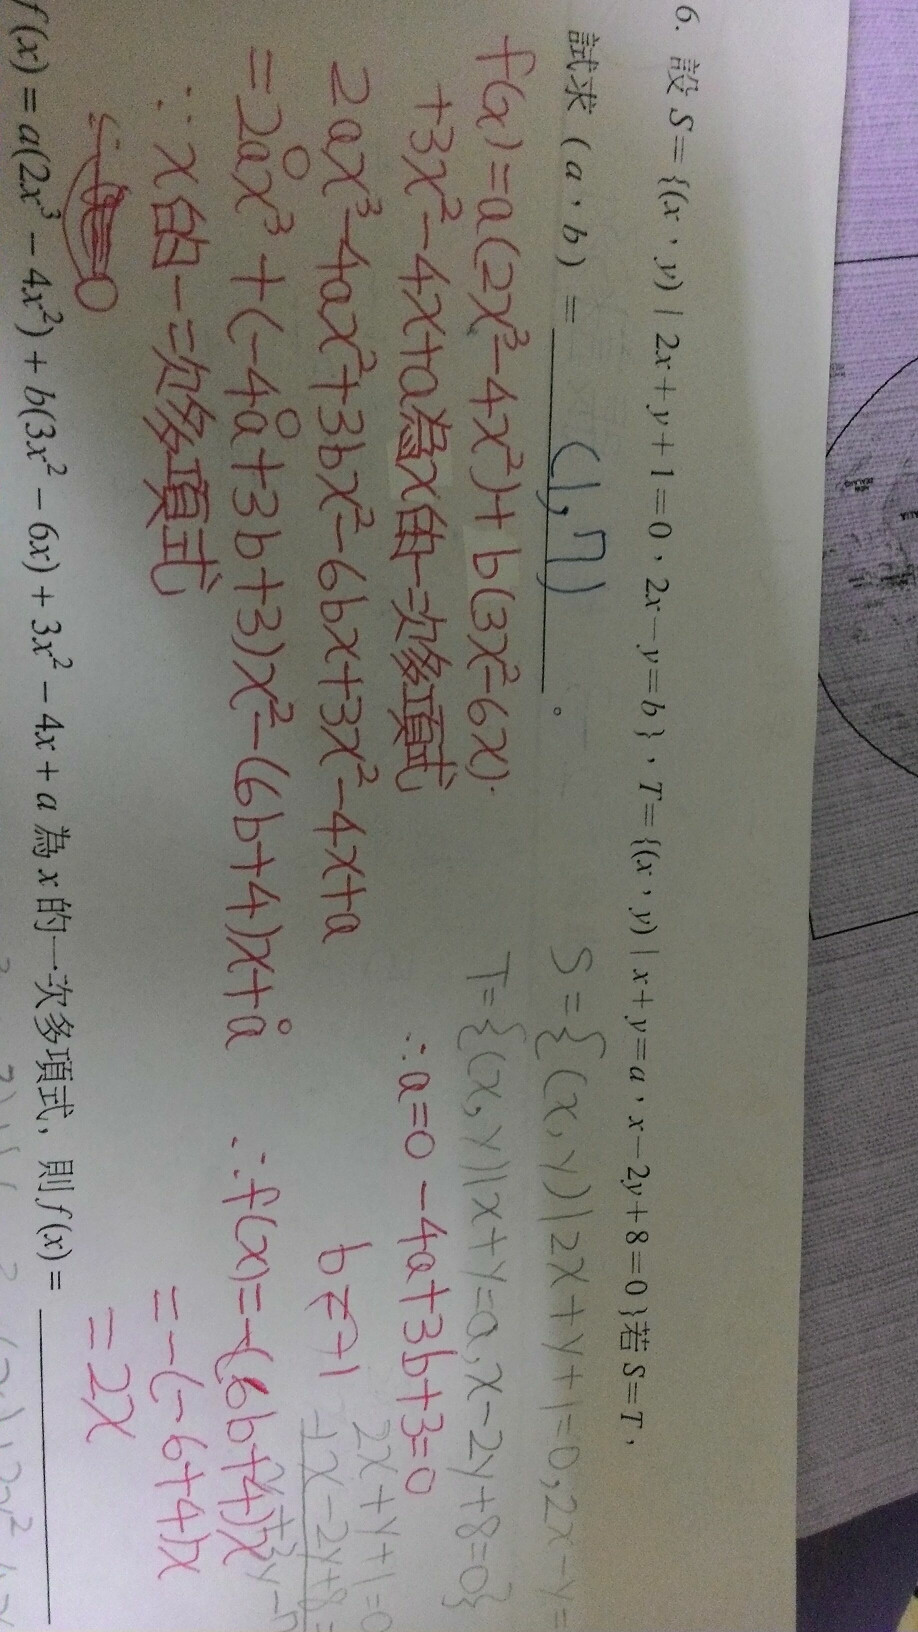 6. 設 S={(x，y)｜2x+y+1=0，2x−y=b}，T={(x，y)｜x+y=a，x−2y+8=0}若 S=T，
試求（a，b）= (1,7) 。
S={(x,y)|2x+y+1=0,2x-y=
T={(x,y)|x+y=a,x-2y+8=0}
f(x)=a(2x³-4x²)+b(3x²-6x)
+3x²-4x+a為x的一次多項式
2ax³-4ax²+3bx²-6bx+3x²-4x+a
=2ax³+(-4a+3b+3)x²-(6b+4)x+a
∵x的一次多項式
∴a=0 -4a+3b+3=0
b=-1
2x+y+1=0
x-2y+8=
∴f(x)=-(6b+4)x
=-(-6+4)x
=2x
f(x)=a(2x³−4x²)+b(3x²−6x)+3x²−4x+a 為 x 的一次多項式，則 f(x)=